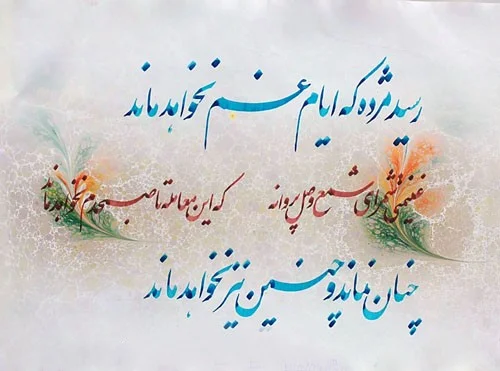 رسید مژده که ایام غم نخواهد ماند
غنیمتی شمر ای شمع وصل پروانه که این معامله تا صبحدم نخواهد ماند
چنان نماند و چنین نیز نخواهد ماند